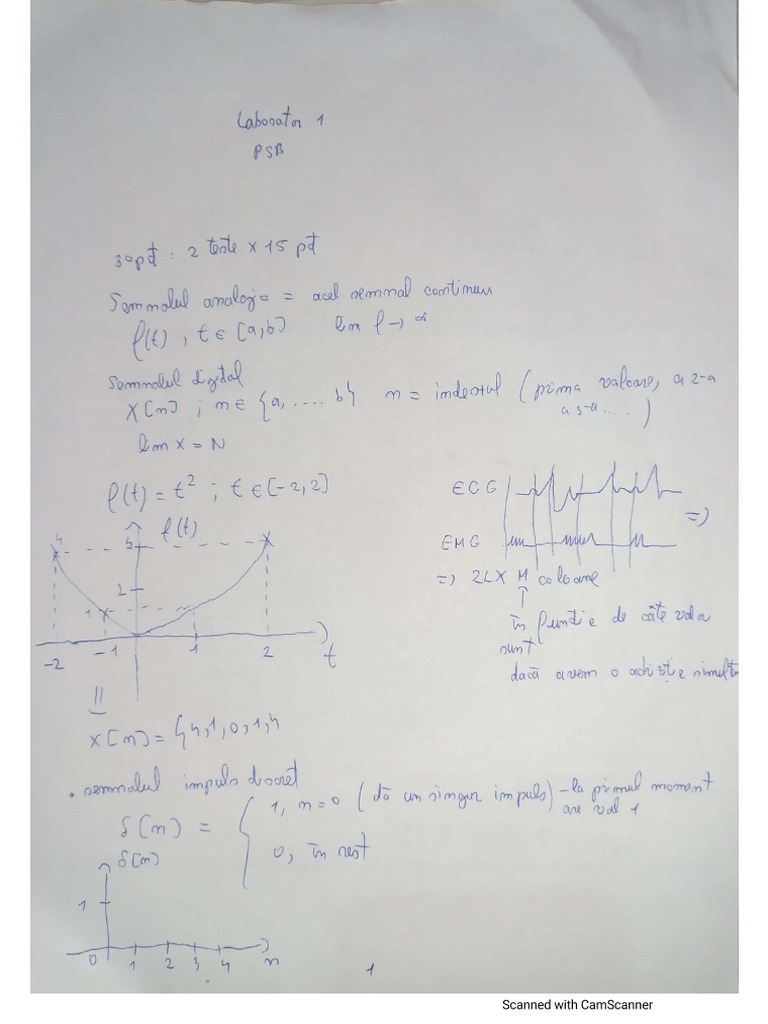 Laborator 1
PSB
30pct : 2 teste x 15 pct
Semnalul analogic = acel semnal continuu
f(t) ; t ∈ [a,b] lim f → ∞
Semnalul digital
X[n] ; n ∈ {a, .... b} n = indexul (prima valoare, a 2-a
a 3-a .... )
lim x = N
f(t) = t² ; t ∈ [-2, 2]
f(t)
4
4
2
1
-2 -1 1 2 t
ECG
=>
EMG
=> 2L X M coloane
↑
în funcție de câte valori
sunt
dacă avem o achiziție simult
X[n] = {4, 1, 0, 1, 4
• semnalul impuls discret
δ[n] = { 1, n=0 (dă un singur impuls) - la primul moment
are val 1
0, în rest
δ[n]
1
0 1 2 3 4 n
1
Scanned with CamScanner